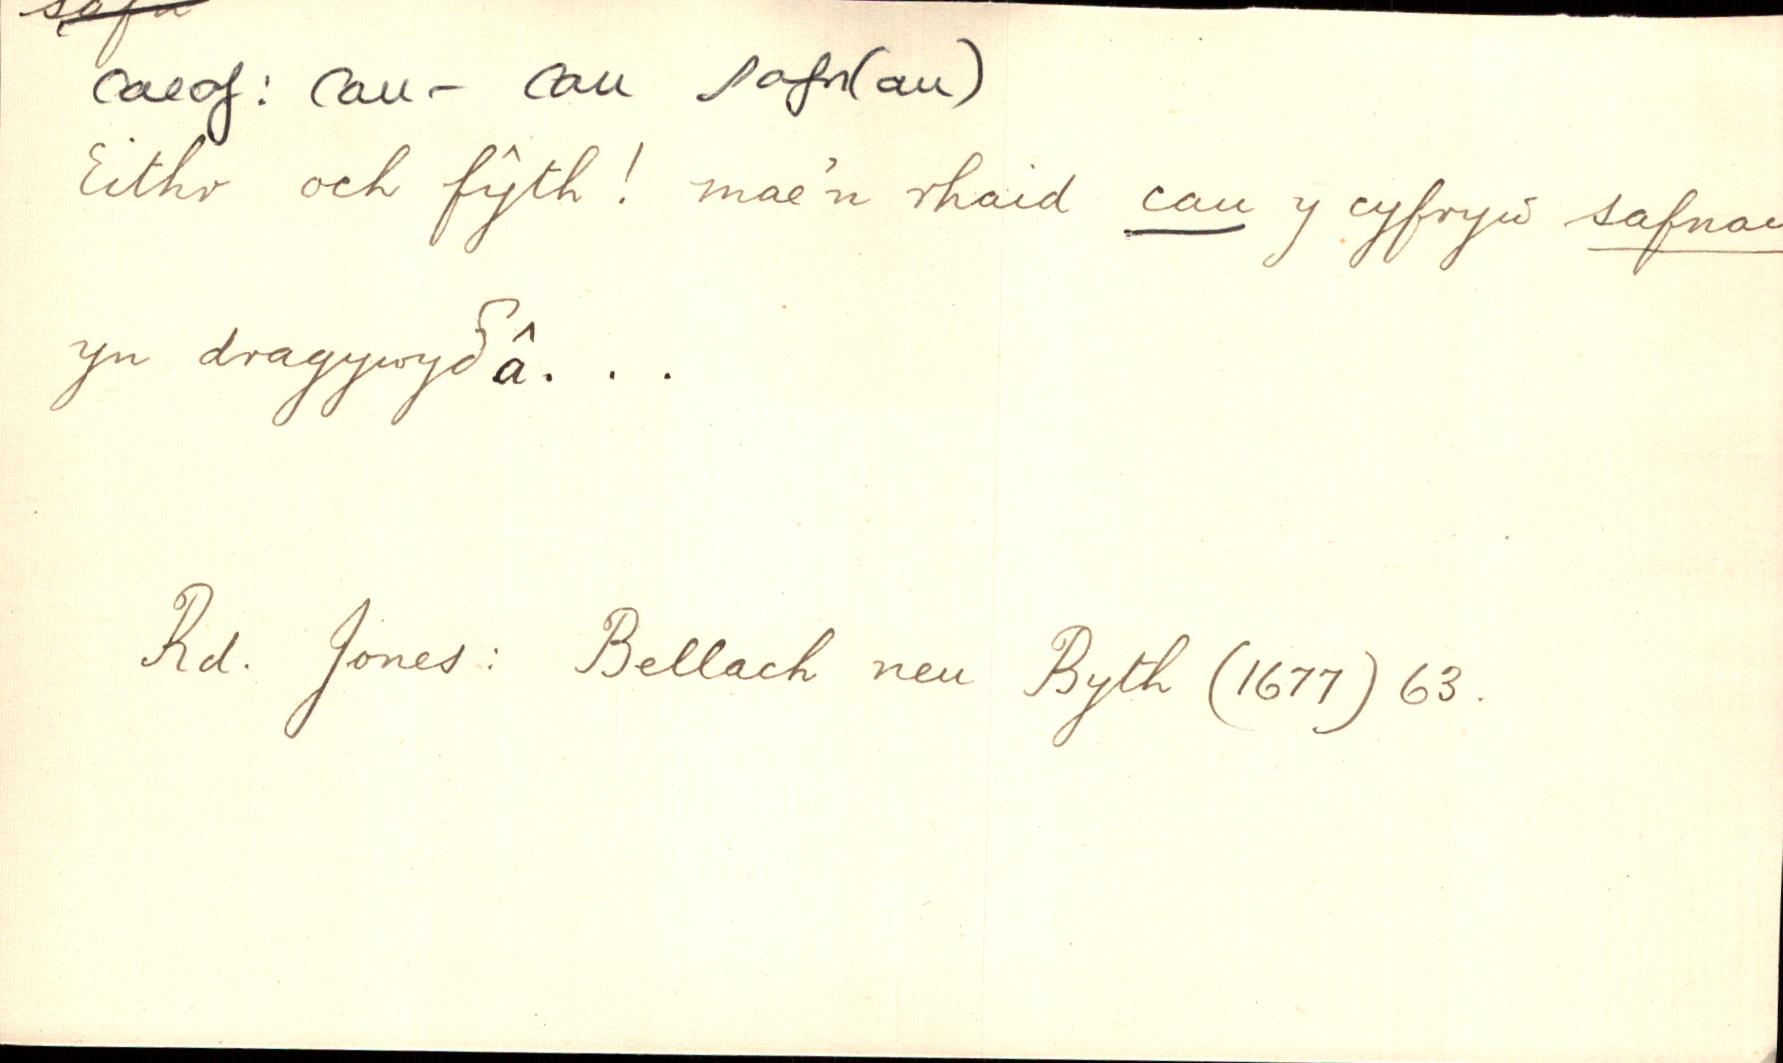 safn
caeaf: cau – cau safn(au)
Eithr och fŷth! mae'n rhaid cau y cyfryw safnau
yn dragywydδâ. . .
Rd. Jones: Bellach neu Byth (1677) 63.